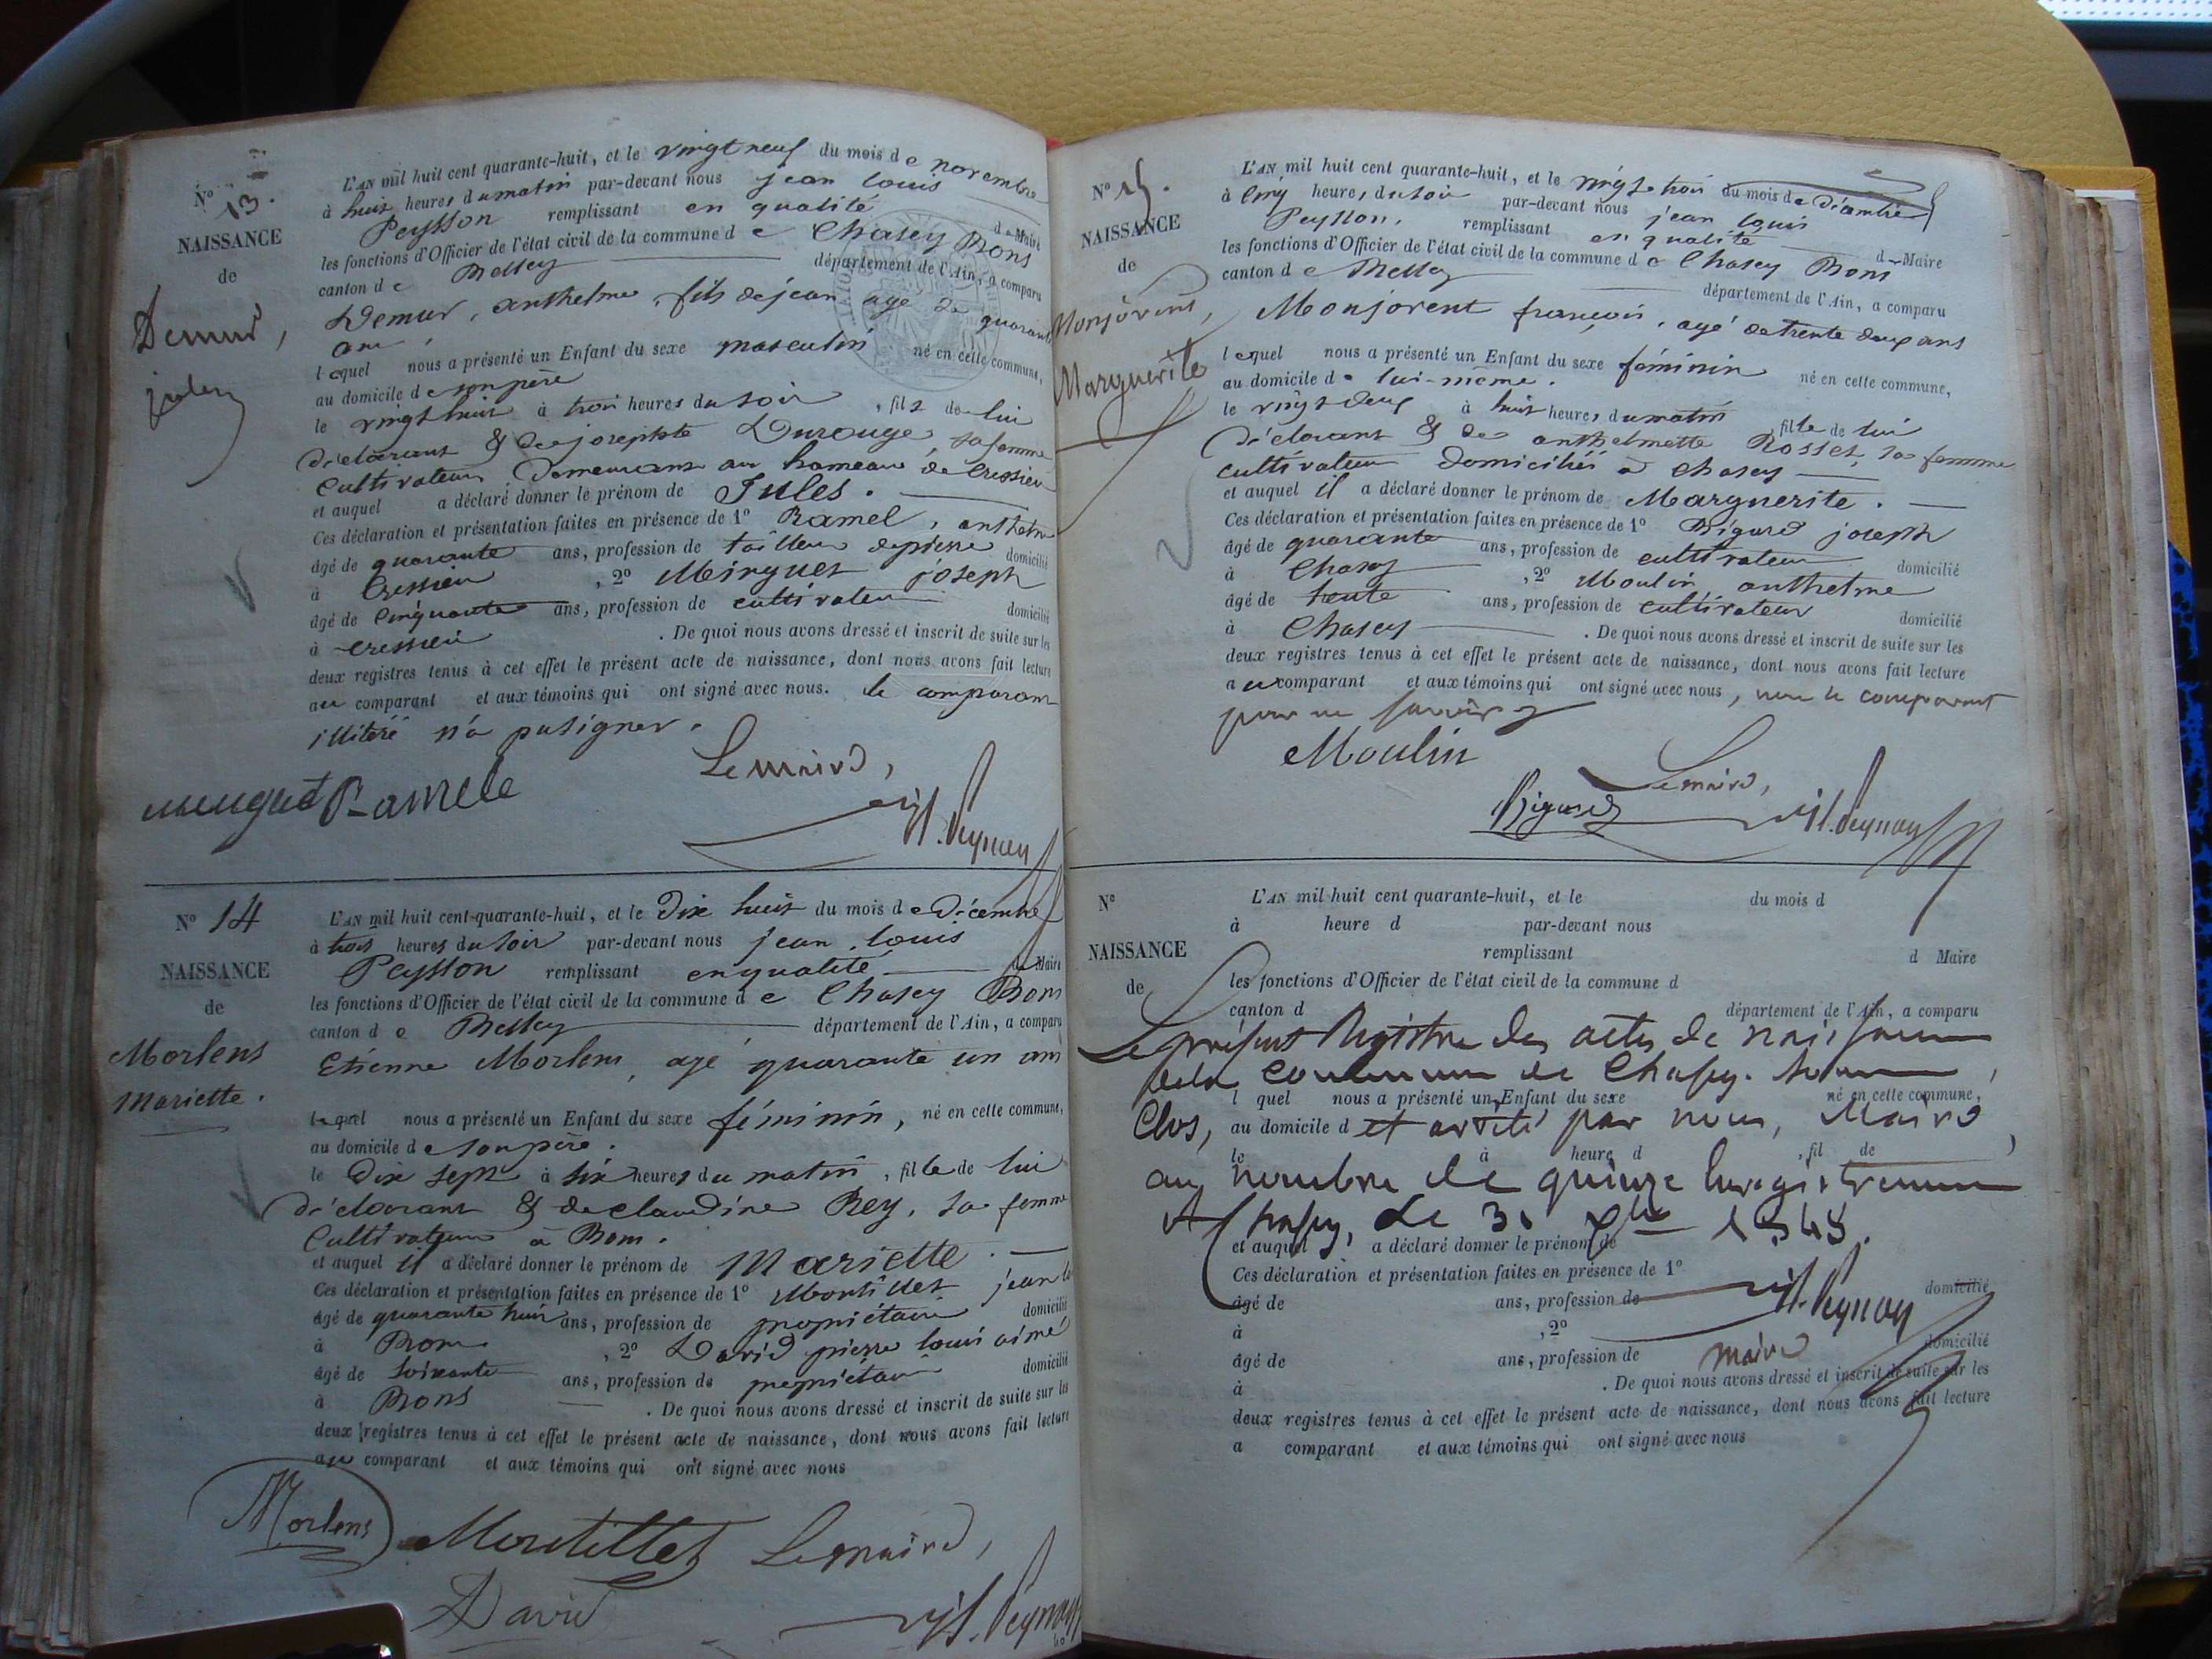 N° 13.
NAISSANCE
de
Demur,
jules
L'AN mil huit cent quarante-huit, et le vingt neuf du mois de novembre
à huit heures du matin par-devant nous jean louis
Peysson remplissant en qualité de Maire
les fonctions d'Officier de l'état civil de la commune de Chasey Bons
canton de Belley département de l'Ain, a comparu
Demur, anthelme, fils de jean agé de quarante
ans,
lequel nous a présenté un Enfant du sexe masculin né en cette commune,
au domicile de son père
le vingt huit à trois heures du soir, fils de lui
déclarant & de josephte Durouge, sa femme
cultivateurs Demeurant au hameau de Cressieu
et auquel a déclaré donner le prénom de Jules.
Ces déclaration et présentation faites en présence de 1° Ramel, anthelme
âgé de quarante ans, profession de tailleur de pierre domicilié
à Cressieu, 2° Minguet joseph
âgé de Cinquante ans, profession de cultivateur domicilié
à Cressieu. De quoi nous avons dressé et inscrit de suite sur les
deux registres tenus à cet effet le présent acte de naissance, dont nous avons fait lecture
au comparant et aux témoins qui ont signé avec nous. le comparant
illitéré n'a pu signer.
Le maire,
Ramele
N° 14
NAISSANCE
de
Morlens
Mariette.
L'AN mil huit cent quarante-huit, et le Dix huit du mois de Décembre
à trois heures du soir par-devant nous jean louis
Peysson remplissant en qualité de Maire
les fonctions d'Officier de l'état civil de la commune de Chasey Bons
canton de Belley département de l'Ain, a comparu
Etienne Morlens, agé quarante un ans
lequel nous a présenté un Enfant du sexe féminin, né en cette commune,
au domicile de son père.
le Dix sept à six heures du matin, fille de lui
déclarant & de claudine Rey, sa femme
Cultivateurs à Bons.
et auquel il a déclaré donner le prénom de Mariette.
Ces déclaration et présentation faites en présence de 1° Montillet jean
âgé de quarante huit ans, profession de propriétaire domicilié
à Bons, 2° David pierre louis aimé
âgé de Soixante ans, profession de propriétaire domicilié
à Bons. De quoi nous avons dressé et inscrit de suite sur les
deux registres tenus à cet effet le présent acte de naissance, dont nous avons fait lecture
au comparant et aux témoins qui ont signé avec nous
Morlens Montillet Le maire,
David
N° 15.
NAISSANCE
de
Monjorent,
Marguerite
L'AN mil huit cent quarante-huit, et le vingt trois du mois de Décembre
à Cinq heures du soir par-devant nous jean louis
Peysson, remplissant en qualité de Maire
les fonctions d'Officier de l'état civil de la commune de Chasey Bons
canton de Belley département de l'Ain, a comparu
Monjorent françois, agé de trente deux ans
lequel nous a présenté un Enfant du sexe féminin né en cette commune,
au domicile de lui-même.
le vingt deux à huit heures du matin fille de lui
déclarant & de anthelmette Rosset, sa femme
cultivateurs domiciliés à Chasey
et auquel il a déclaré donner le prénom de Marguerite.
Ces déclaration et présentation faites en présence de 1° Bigurd joseph
âgé de quarante ans, profession de cultivateur domicilié
à Chasey, 2° Moulin anthelme
âgé de trente ans, profession de cultivateur domicilié
à Chasey. De quoi nous avons dressé et inscrit de suite sur les
deux registres tenus à cet effet le présent acte de naissance, dont nous avons fait lecture
au comparant et aux témoins qui ont signé avec nous, non le comparant
pour ne savoir
Moulin
Le maire,
N°
NAISSANCE
de
L'AN mil huit cent quarante-huit, et le du mois d
à heure d par-devant nous
remplissant d Maire
les fonctions d'Officier de l'état civil de la commune d
canton d département de l'Ain, a comparu
Le présent Registre des actes de naissance
de la Commune de Chasey-bons
l quel nous a présenté un Enfant du sexe né en cette commune,
Clos, et arrêté par nous, Maire,
au domicile d
le à heure d, fil de
au nombre de quinze Enregistrement
A Chasey, le 31 Xbre 1848.
et auquel a déclaré donner le prénom de
Ces déclaration et présentation faites en présence de 1°
âgé de ans, profession de domicilié
à, 2°
âgé de ans, profession de domicilié
maire
à. De quoi nous avons dressé et inscrit de suite sur les
deux registres tenus à cet effet le présent acte de naissance, dont nous avons fait lecture
a comparant et aux témoins qui ont signé avec nous